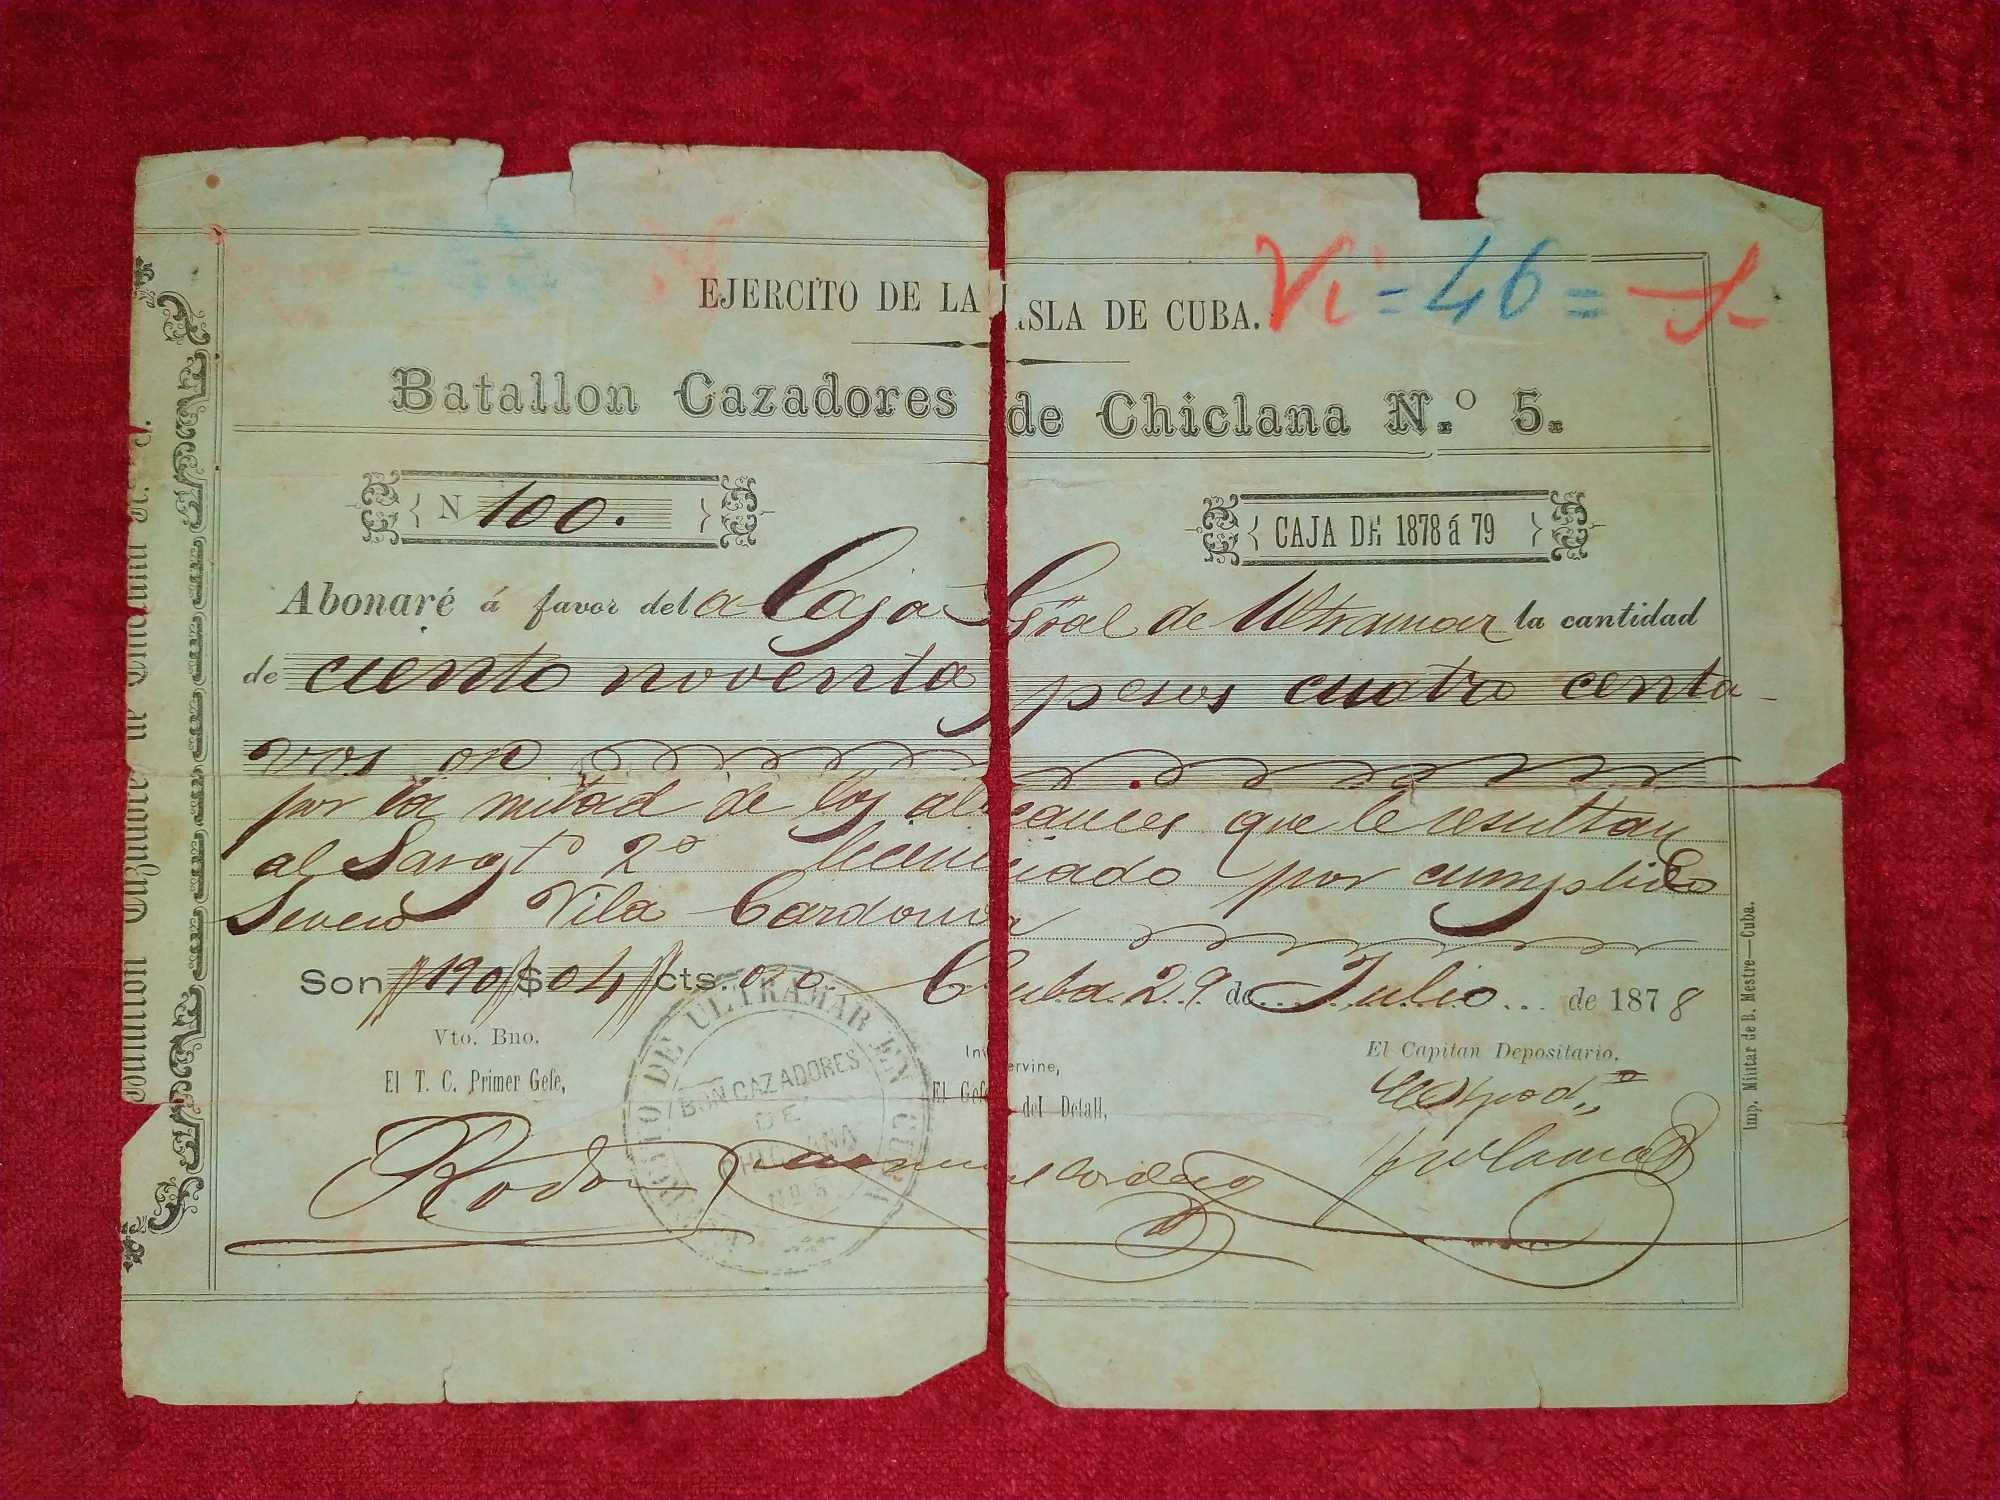 EJERCITO DE LA ISLA DE CUBA. Vi = 46 =
Batallon Cazadores de Chiclana N.º 5.
N 100. CAJA DE 1878 á 79
Abonaré á favor del a Caja Gral de Ultramar la cantidad
de ciento noventa pesos cuatro centa-
vos oro
por la mitad de los alcances que le resultan
al Sargto 2º licenciado por cumplido
Severo Vila Cardona
Son 190 $ 04 cts. oro. Cuba 29 de Julio de 1878
Vto. Bno. Intervine, El Capitan Depositario.
El T. C. Primer Gefe, El Gefe del Detall,
DE ULTRAMAR EN CUBA
BON CAZADORES
DE
CHICLANA
Nº 5
Batallon Cazadores de Chiclana N. 5.
Imp. Militar de B. Mestre—Cuba.